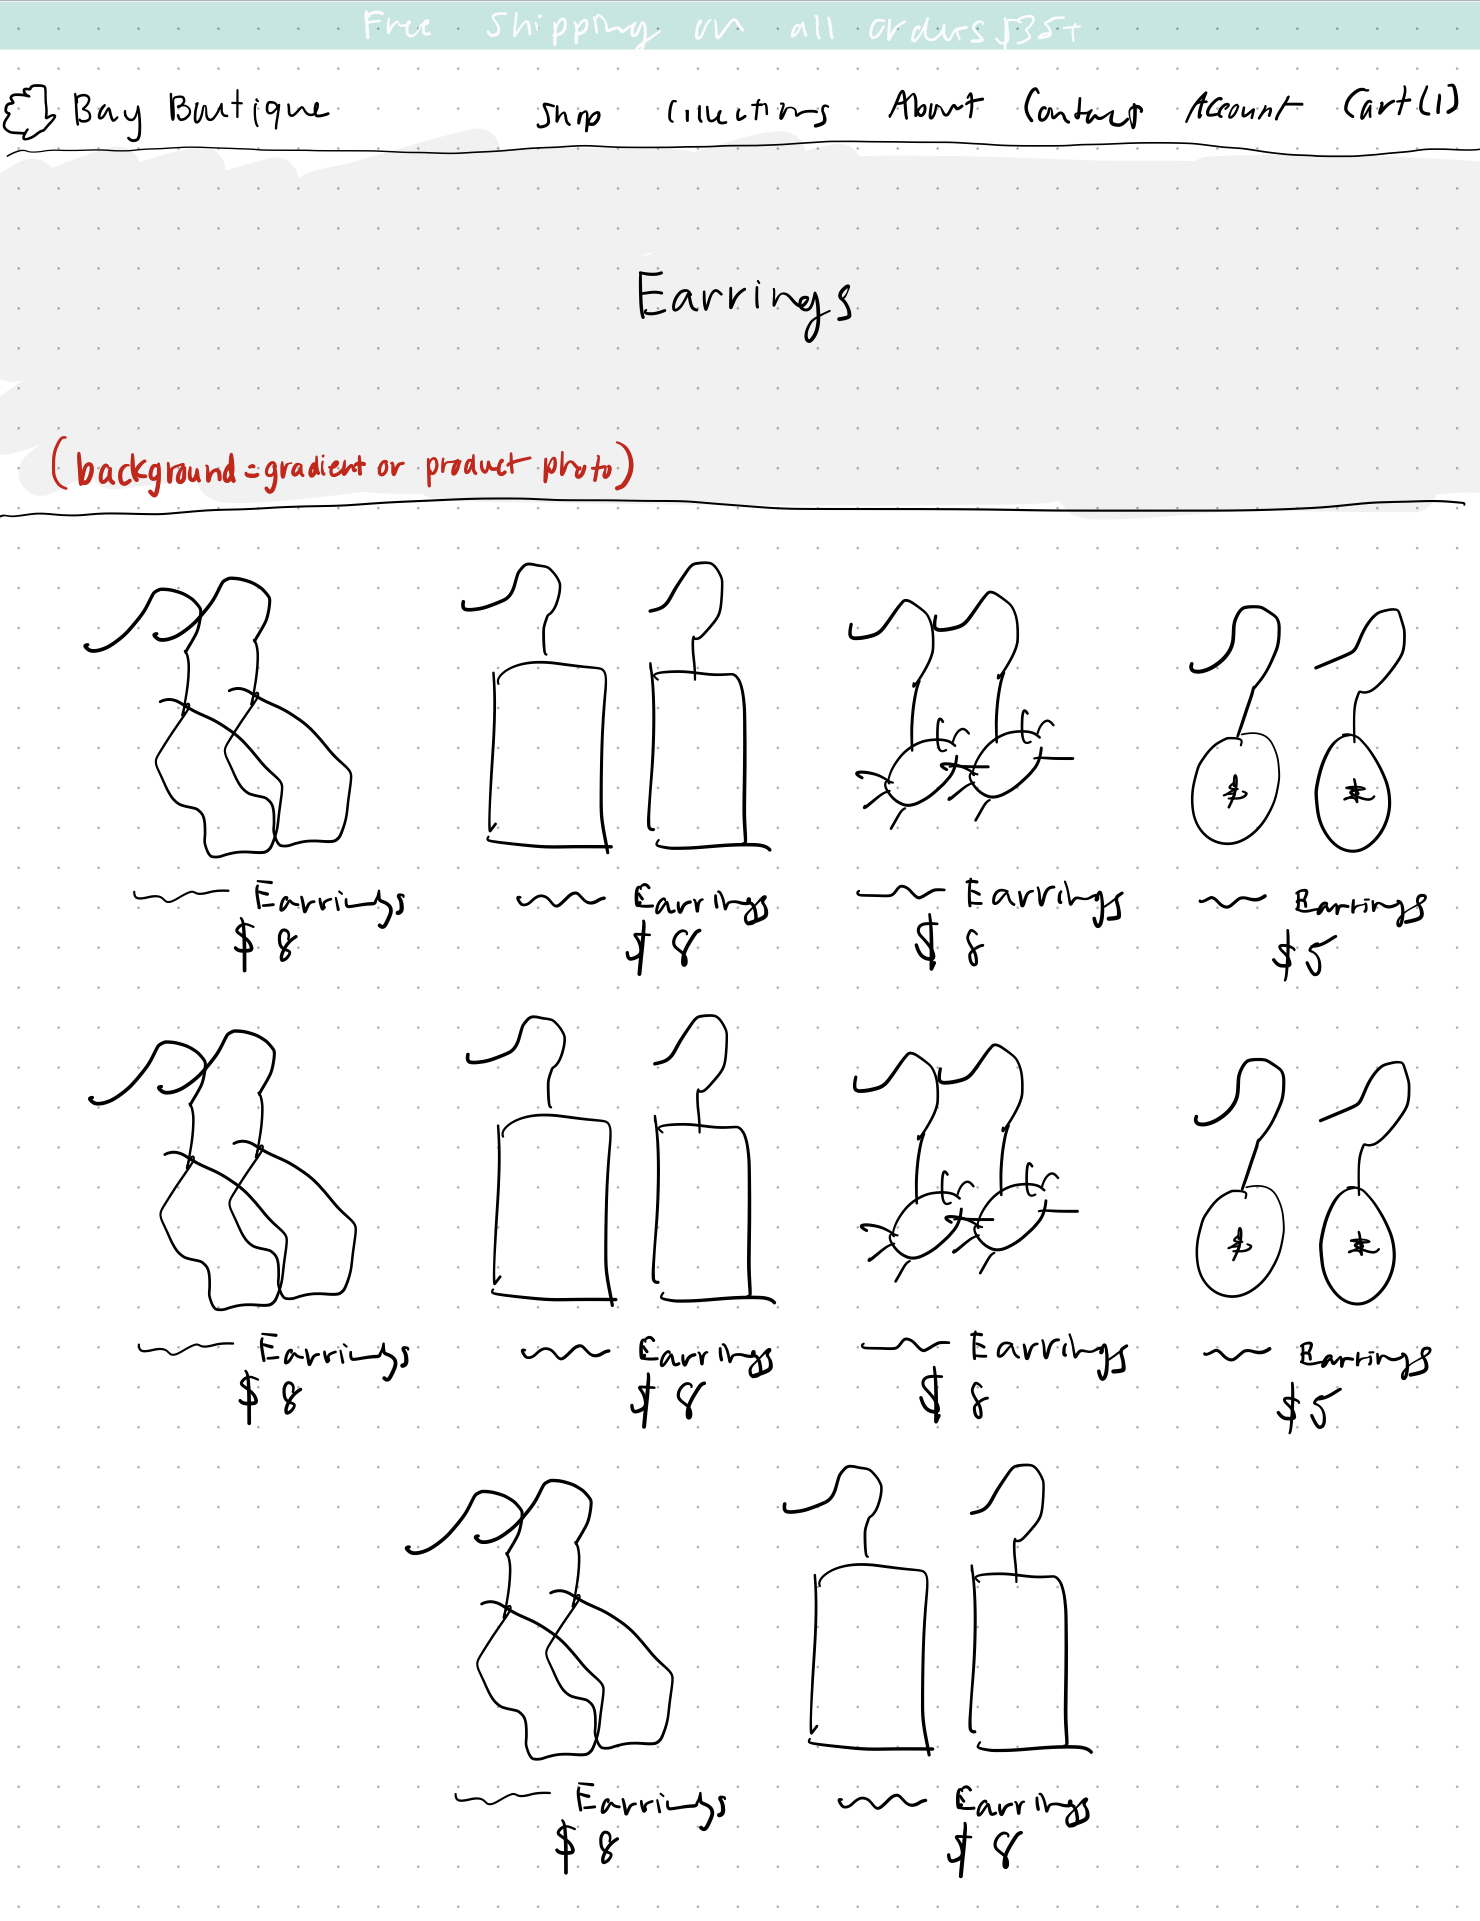 Free Shipping on all orders $35+
Bay Boutique Shop Collections About Contact Account Cart(1)
Earrings
(background=gradient or product photo)
Earrings Earrings Earrings Earrings
$8 $8 $8 $5
Earrings Earrings Earrings Earrings
$8 $8 $8 $5
Earrings Earrings
$8 $8